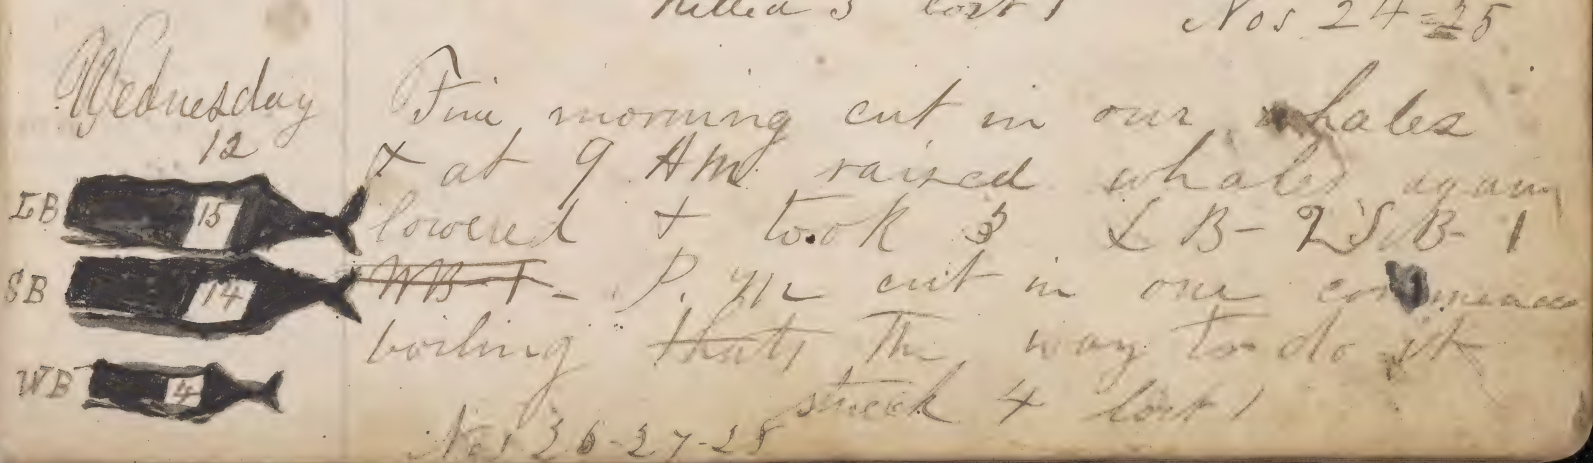 Killed 3 lost 1 Nos 24=25
Wednesday
12
Fine morning cut in our whales
+ at 9 AM raised whales again
LB 15
lowered + took 3 LB- 2 SB- 1
SB 14
WB-1- P. M cut in our commenced
boiling thats The way to do it
WB 4
struck 4 lost 1
Nos 26-27-28